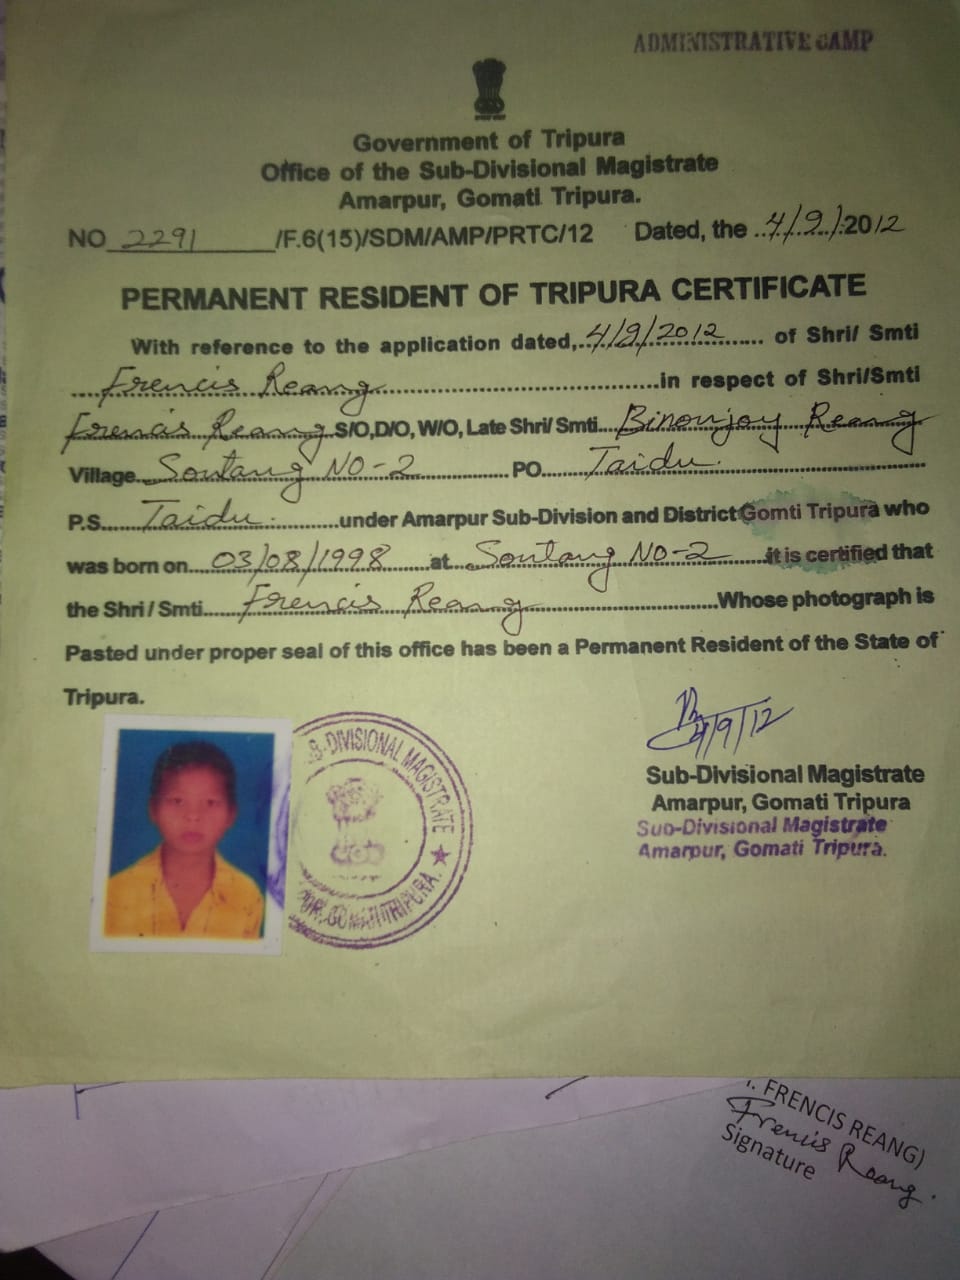 ADMINISTRATIVE CAMP
Government of Tripura
Office of the Sub-Divisional Magistrate
Amarpur, Gomati Tripura.
NO 2291 /F.6(15)/SDM/AMP/PRTC/12 Dated, the 4/9/2012
PERMANENT RESIDENT OF TRIPURA CERTIFICATE
With reference to the application dated, 4/9/2012 of Shri/ Smti
Frencis Reang in respect of Shri/Smti
Frencis Reang S/O,D/O, W/O, Late Shri/ Smti. Binoujoy Reang
Village Soutang NO-2 PO Taidu.
P.S. Taidu. under Amarpur Sub-Division and District Gomti Tripura who
was born on 03/08/1998 at Soutang NO-2 it is certified that
the Shri / Smti Frencis Reang Whose photograph is
Pasted under proper seal of this office has been a Permanent Resident of the State of
Tripura.
B-DIVISIONAL MAGISTRATE
GOMATI TRIPURA.
4/9/12
Sub-Divisional Magistrate
Amarpur, Gomati Tripura
Sub-Divisional Magistrate
Amarpur, Gomati Tripura.
FRENCIS REANG)
Frencis Reang.
Signature